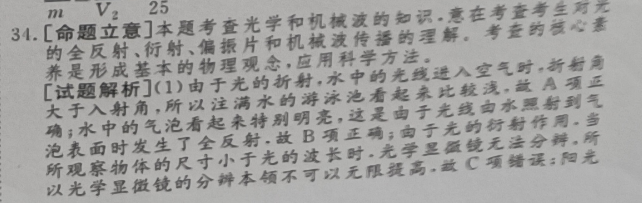 m V₂ 25
34.[命题立意]本题考查光学和机械波的知识.意在考查考生对光
的全反射、衍射、偏振片和机械波传播的理解。考查的核心素
养是形成基本的物理观念,应用科学方法。
[试题解析](1)由于光的折射,水中的光线进入空气时,折射角
大于入射角,所以注满水的游泳池看起来比较浅,故 A 项正
确;水中的气泡看起来特别明亮,这是由于光线由水照射到气
泡表面时发生了全反射,故 B 项正确;由于光的衍射作用,当
所观察物体的尺寸小于光的波长时,光学显微镜无法分辨,所
以光学显微镜的分辨本领不可以无限提高,故 C 项错误;阳光